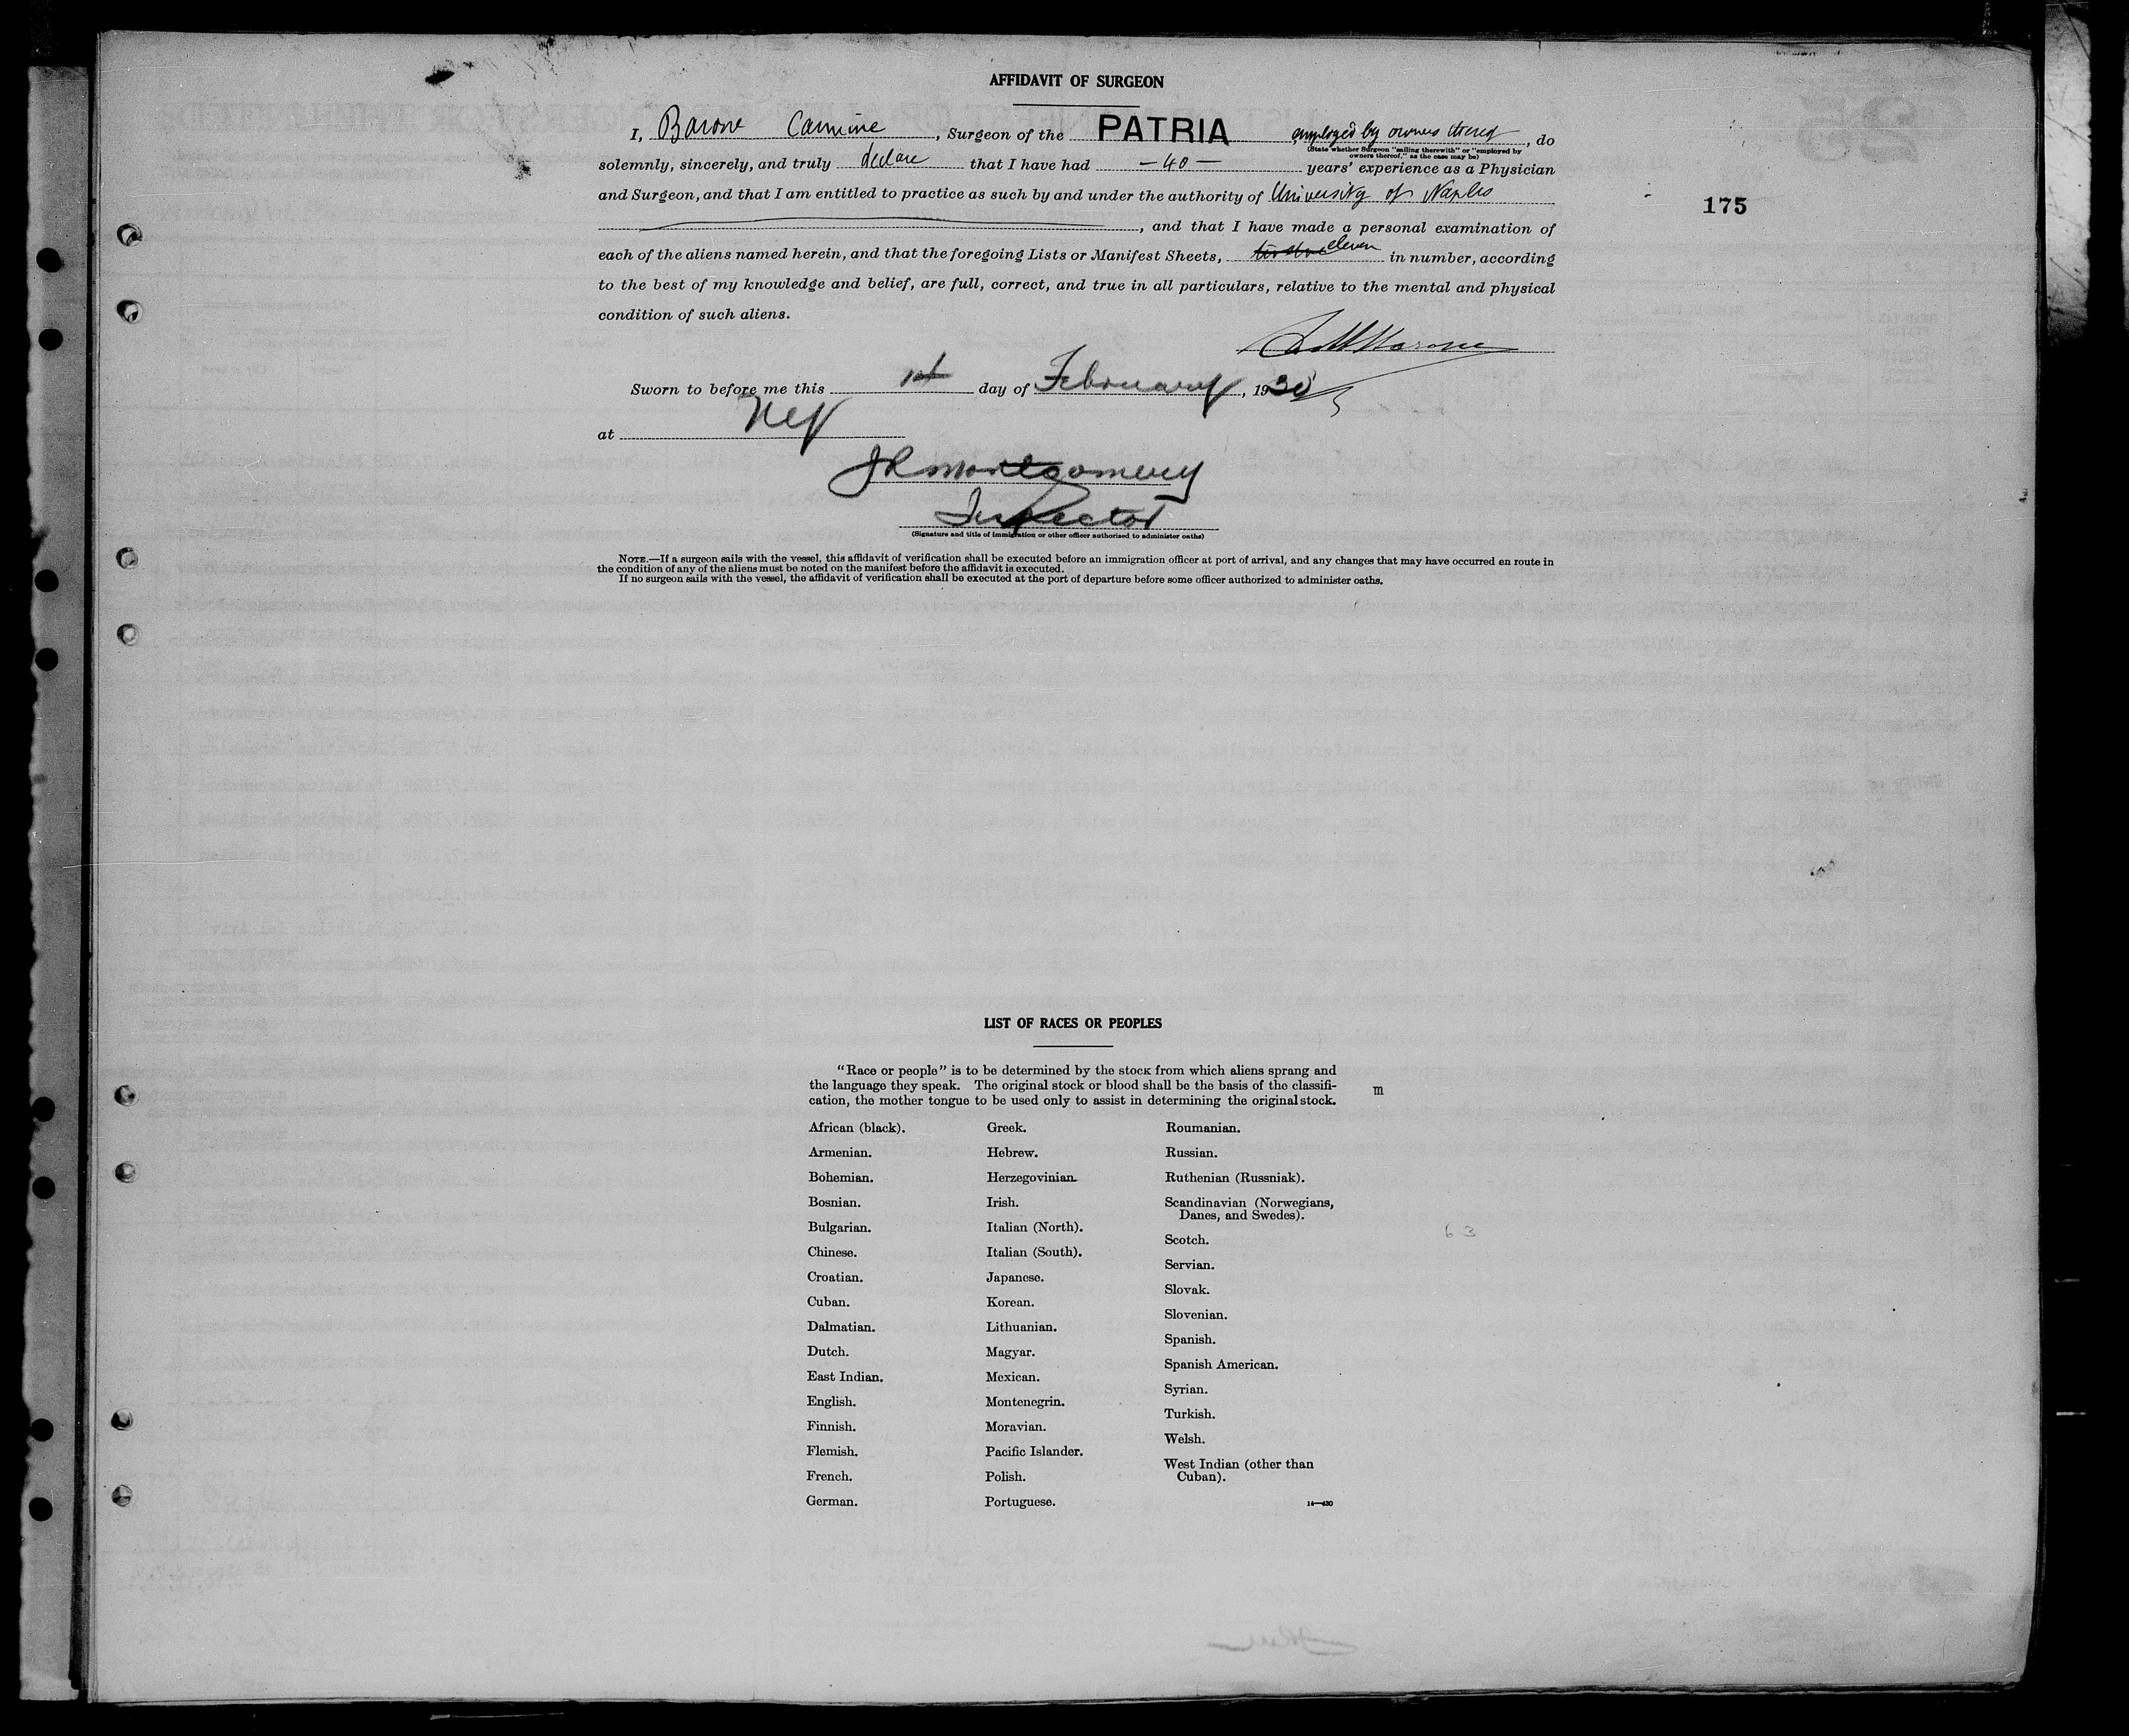 AFFIDAVIT OF SURGEON
I, Barone Carmine, Surgeon of the PATRIA employed by owners thereof, do
(State whether Surgeon "sailing therewith" or "employed by
owners thereof," as the case may be)
solemnly, sincerely, and truly declare that I have had — 40 — years' experience as a Physician
and Surgeon, and that I am entitled to practice as such by and under the authority of University of Naples
175
, and that I have made a personal examination of
each of the aliens named herein, and that the foregoing Lists or Manifest Sheets, eleven in number, according
to the best of my knowledge and belief, are full, correct, and true in all particulars, relative to the mental and physical
condition of such aliens.
Sworn to before me this 1st day of February, 1930
at NY
JR Montgomery
Inspector
(Signature and title of immigration or other officer authorized to administer oaths)
NOTE.—If a surgeon sails with the vessel, this affidavit of verification shall be executed before an immigration officer at port of arrival, and any changes that may have occurred en route in
the condition of any of the aliens must be noted on the manifest before the affidavit is executed.
If no surgeon sails with the vessel, the affidavit of verification shall be executed at the port of departure before some officer authorized to administer oaths.
LIST OF RACES OR PEOPLES
"Race or people" is to be determined by the stock from which aliens sprang and
the language they speak. The original stock or blood shall be the basis of the classifi-
cation, the mother tongue to be used only to assist in determining the original stock.
m
African (black).
Armenian.
Bohemian.
Bosnian.
Bulgarian.
Chinese.
Croatian.
Cuban.
Dalmatian.
Dutch.
East Indian.
English.
Finnish.
Flemish.
French.
German.
Greek.
Hebrew.
Herzegovinian.
Irish.
Italian (North).
Italian (South).
Japanese.
Korean.
Lithuanian.
Magyar.
Mexican.
Montenegrin.
Moravian.
Pacific Islander.
Polish.
Portuguese.
Roumanian.
Russian.
Ruthenian (Russniak).
Scandinavian (Norwegians,
Danes, and Swedes).
Scotch.
Servian.
Slovak.
Slovenian.
Spanish.
Spanish American.
Syrian.
Turkish.
Welsh.
West Indian (other than
Cuban).
14—430
63